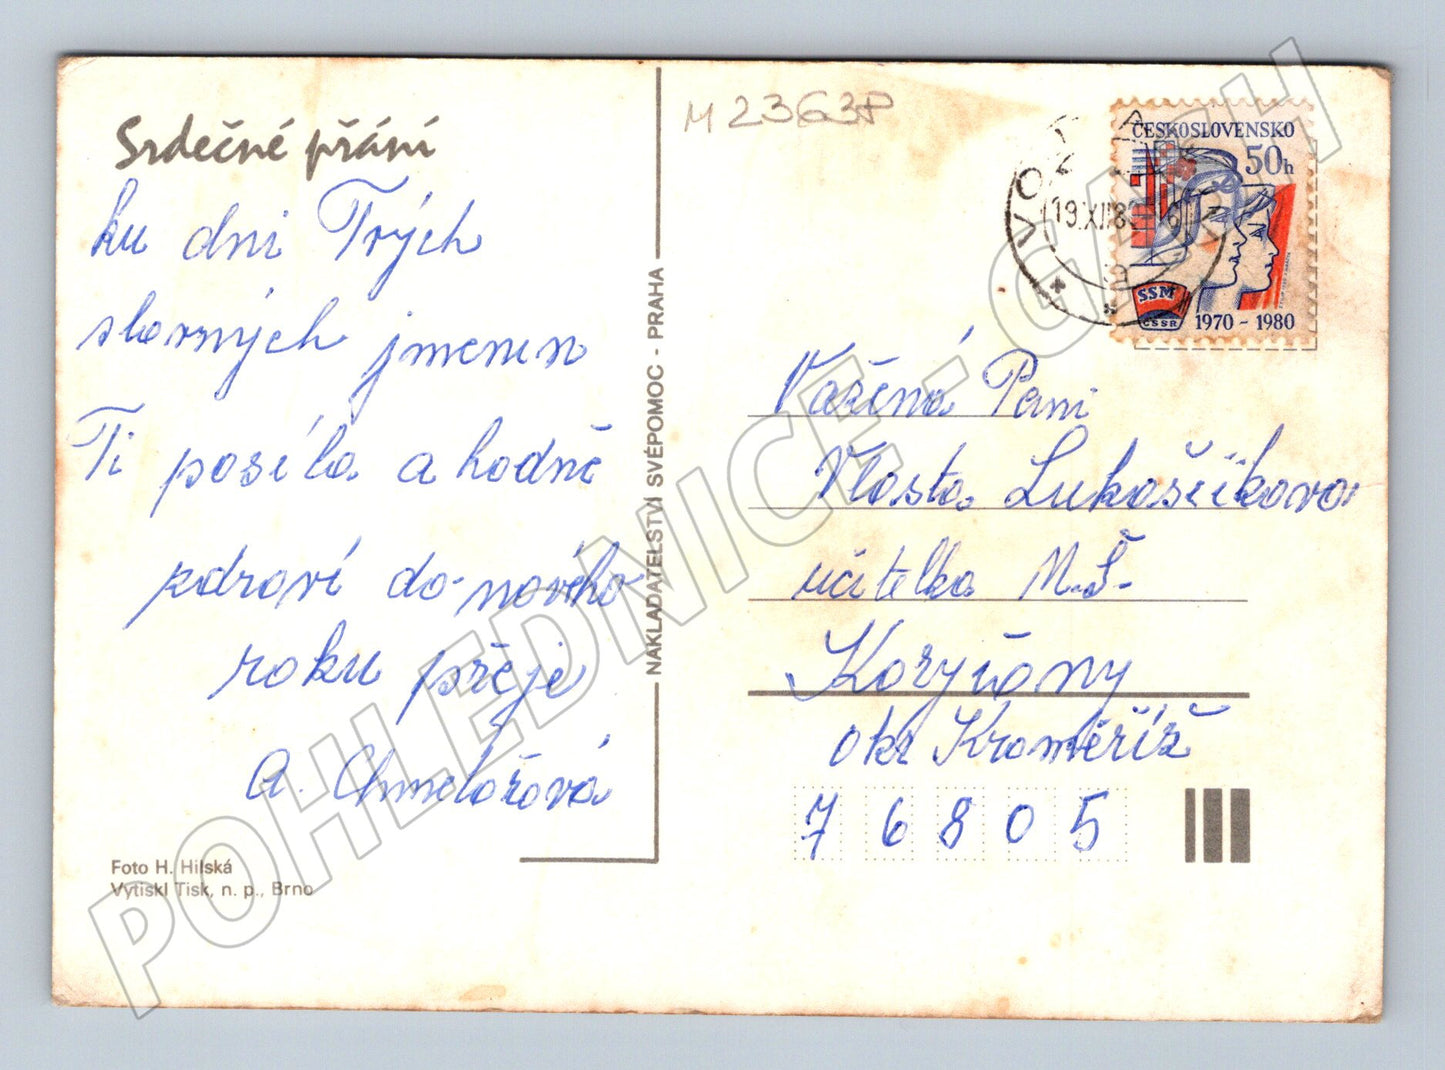 Srdečné přání
ku dni Tvých
slavných jmenin
Ti posíla a hodně
zdraví do nového
roku přeje
A. Chmelařová
Foto H. Hilská
Vytiskl Tisk, n. p., Brno
NAKLADATELSTVÍ SVÉPOMOC - PRAHA
M 2363P
19.XII.8
ČESKOSLOVENSKO
50h
SSM
ČSSR
1970 - 1980
Vážená Paní
Vlasta Lukaščíkova
učitelka M.Š.
Koryčany
okr Kroměříž
76805
POHLEDNICE - GASH